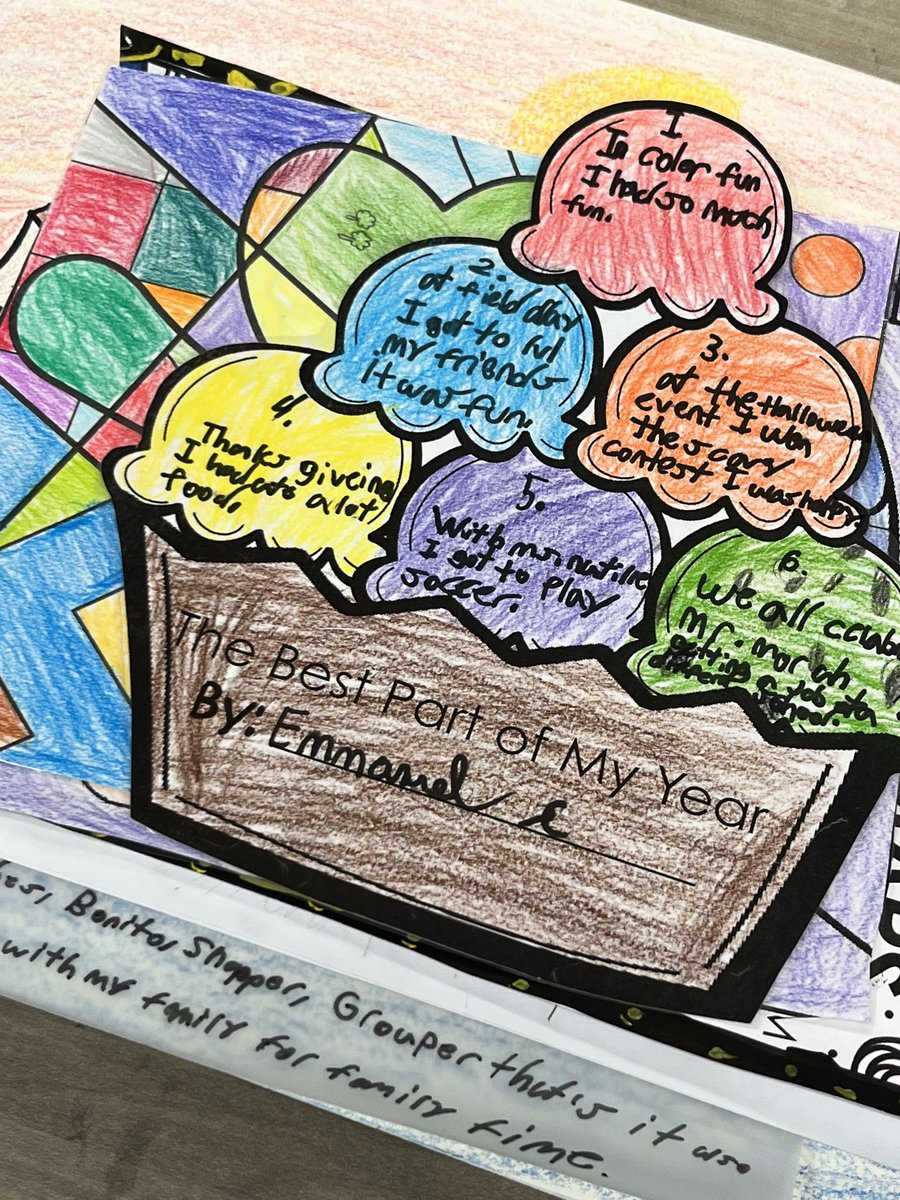 1
In color fun
I had so much
fun.
2.
at field day
I got to
my friends
it was fun.
3.
at the Halloween
event I won
the scary
contest I was happy.
4.
Thanks giveing
I had ate a lot
food.
5.
With mr.
I got to play
soccer.
6.
We all
mr.
getting a job
different
The Best Part of My Year
By: Emmanuel
Bonito, Snapper, Grouper that's it
with my family for family time.